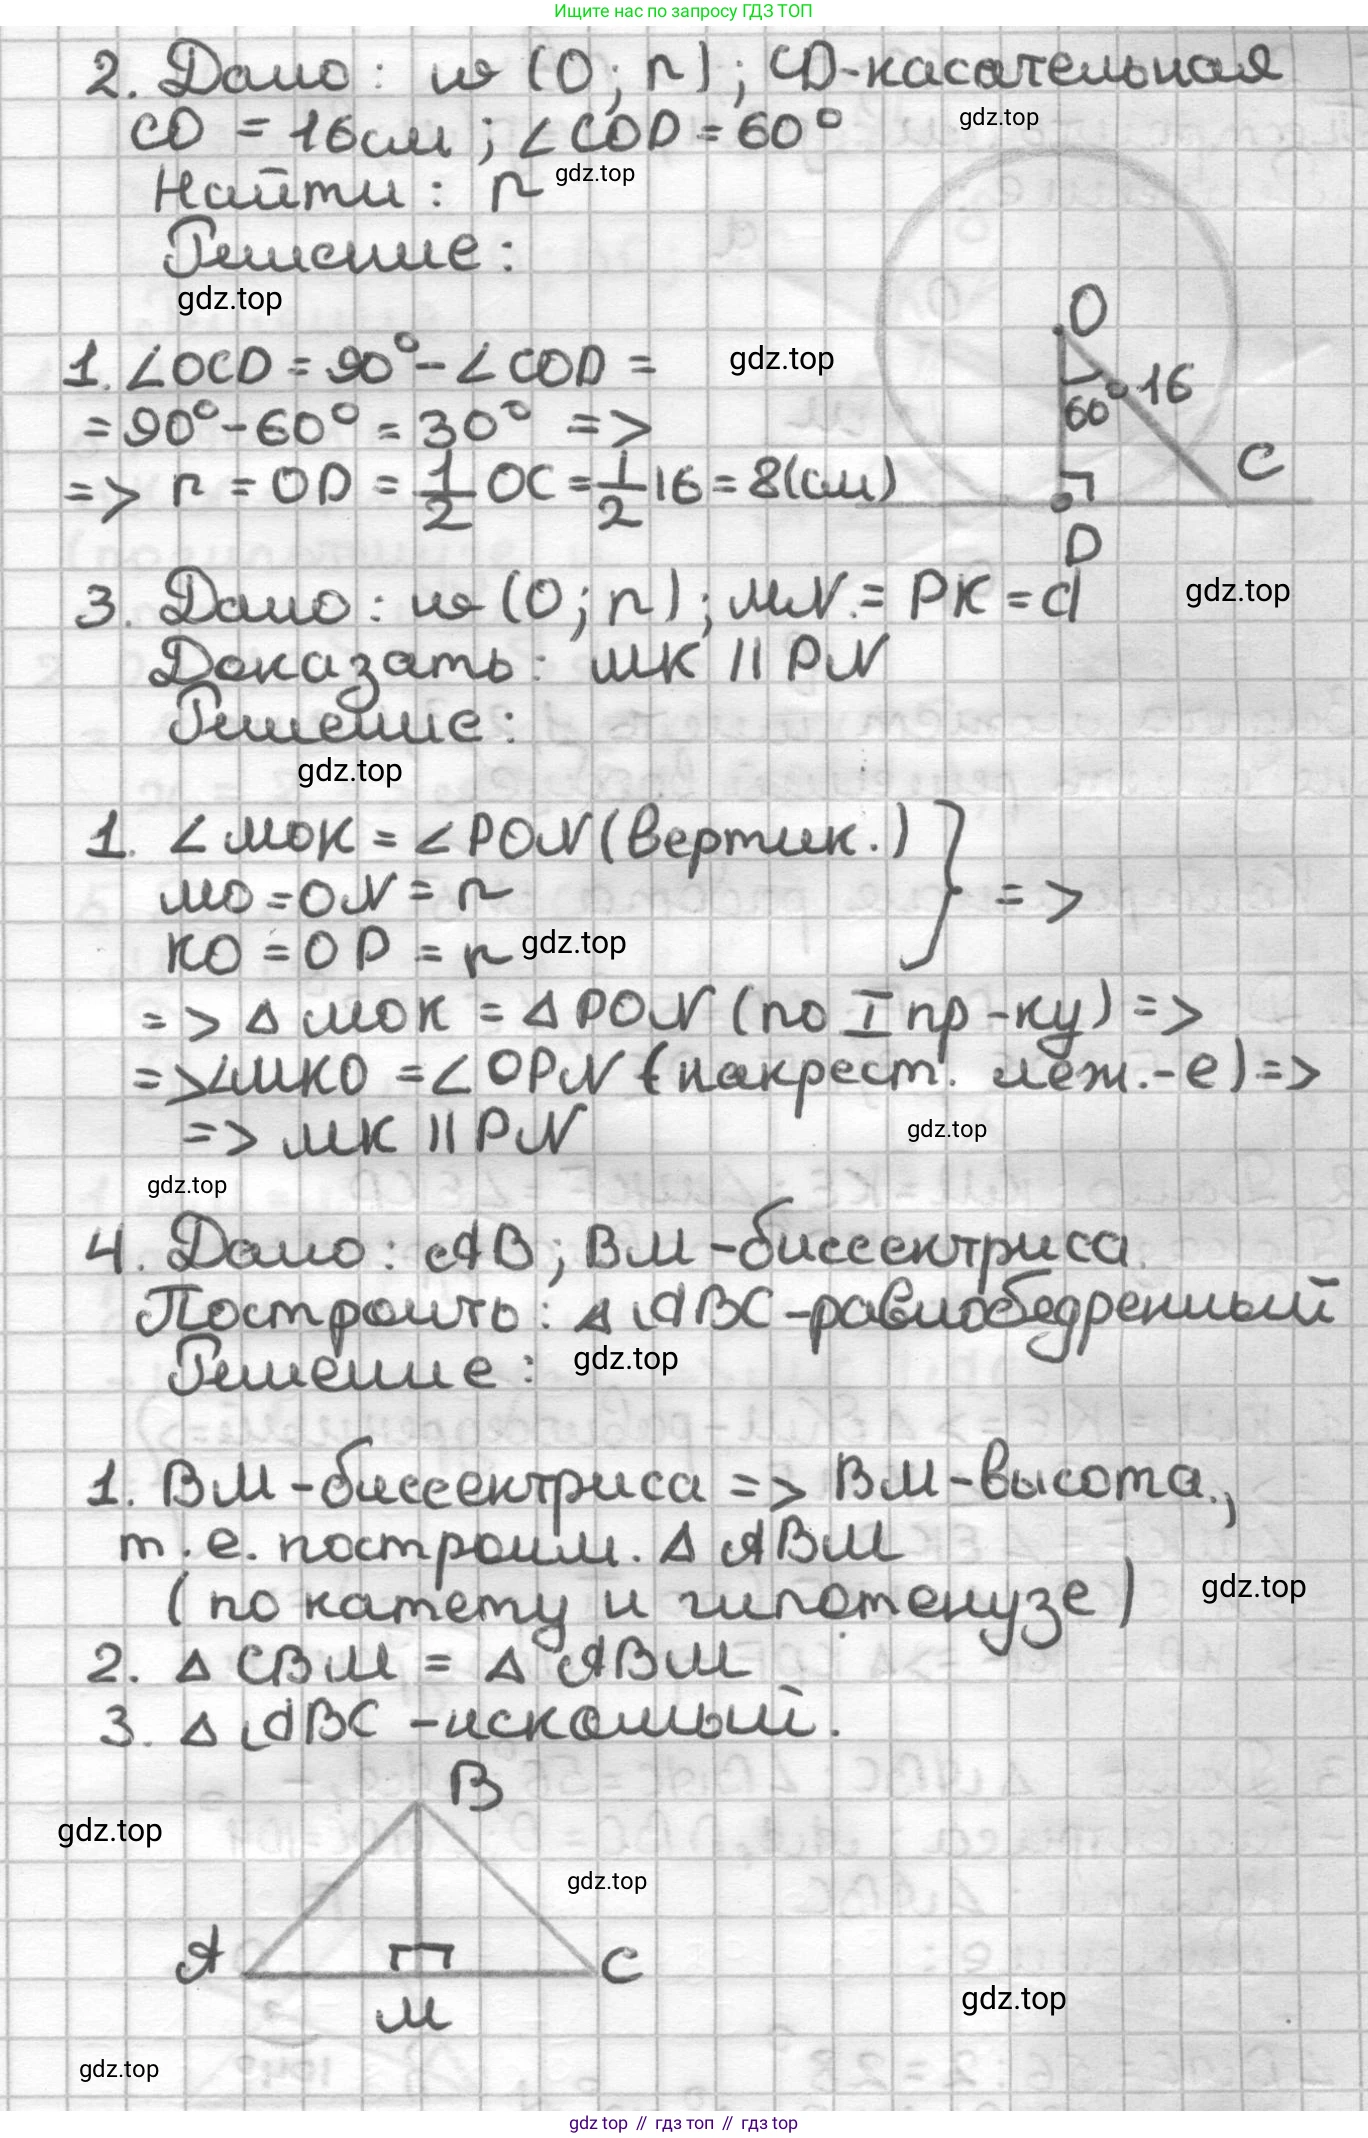 Ищите нас по запросу ГДЗ ТОП
2. Дано: w (O; r); CD-касательная
gdz.top
CO = 16см; ∠COD = 60°
Найти: r
gdz.top
Решение:
gdz.top
O
1. ∠OCD = 90° - ∠COD =
gdz.top
60° 16
= 90° - 60° = 30° =>
C
=> r = OD = 1/2 OC = 1/2 16 = 8(см)
D
3. Дано: w (O; r); MN = PK = d
gdz.top
Доказать: MK || PN
Решение:
gdz.top
1. ∠MOK = ∠PON (вертик.)
MO = ON = r } =>
KO = OP = r
gdz.top
=> △ MOK = △ PON (по I пр-ку) =>
=> ∠MKO = ∠OPN (накрест. леж.-е) =>
=> MK || PN
gdz.top
gdz.top
4. Дано: AB; BM - биссектриса.
Построить: △ ABC - равнобедренный
Решение:
gdz.top
1. BM - биссектриса => BM - высота.,
т.е. построим. △ ABM
(по катету и гипотенузе)
gdz.top
2. △ CBM = △ ABM
3. △ ABC - искомый.
B
gdz.top
gdz.top
A C
gdz.top
M
gdz.top
gdz top // гдз топ // gdz top